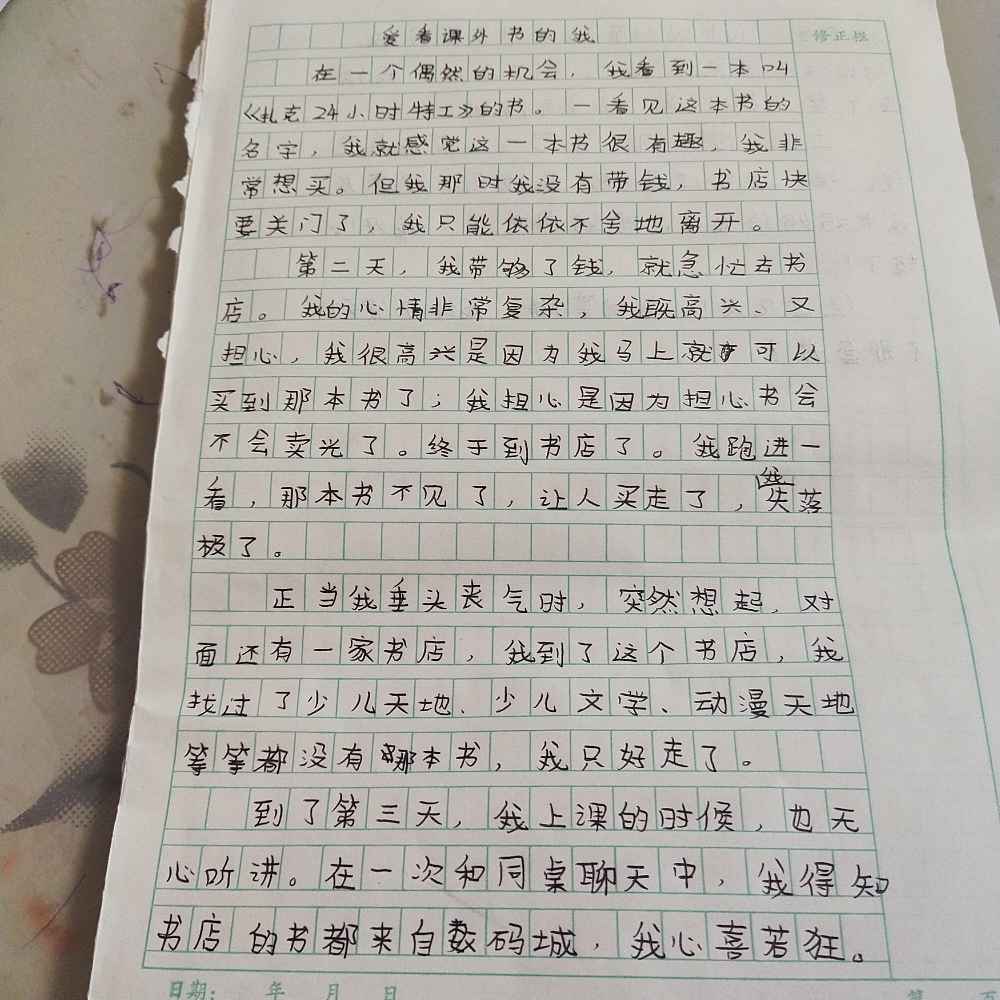 爱看课外书的我
修正栏
在一个偶然的机会，我看到一本叫
《扎克24小时特工》的书。一看见这本书的
名字，我就感觉这一本书很有趣，我非
常想买。但我那时我没有带钱，书店快
要关门了，我只能依依不舍地离开。
第二天，我带够了钱，就急忙去书
店。我的心情非常复杂，我既高兴、又
担心，我很高兴是因为我马上就可以
买到那本书了；我担心是因为担心书会
不会卖光了。终于到书店了。我跑进一
看，那本书不见了，让人买走了，我失落
极了。
正当我垂头丧气时，突然想起，对
面还有一家书店，我到了这个书店，我
找过了少儿天地、少儿文学、动漫天地
等等都没有那本书，我只好走了。
到了第三天，我上课的时候，也无
心听讲。在一次和同桌聊天中，我得知
书店的书都来自数码城，我心喜若狂。
日期： 年 月 日
第 页